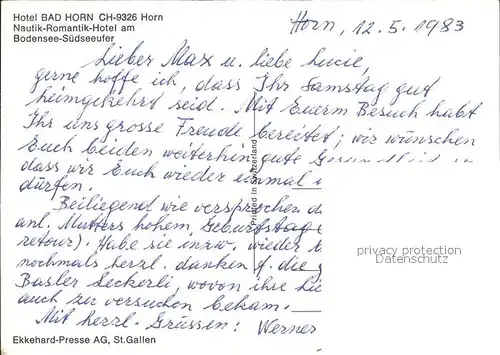 Hotel BAD HORN CH-9326 Horn
Nautik-Romantik-Hotel am
Bodensee-Südseeufer
Horn, 12.5.1983
Lieber Max u. liebe Lucie,
gerne hoffe ich, dass Ihr Samstag gut
heimgekehrt seid. Mit Euerm Besuch habt
Ihr uns grosse Freude bereitet; wir wünschen
Euch beiden weiterhin gute Gesundheit
dass wir Euch wieder einmal
dürfen.
Beiliegend wie versprochen
anl. Mutters hohem Geburtstag
retour). Habe sie inzw. wieder
nochmals herzl. danken f. die
Basler Leckerli, wovon ihre
auch zu versuchen bekam.
Mit herzl. Grüssen: Werner
Printed in Switzerland
privacy protection
Datenschutz
Ekkehard-Presse AG, St.Gallen